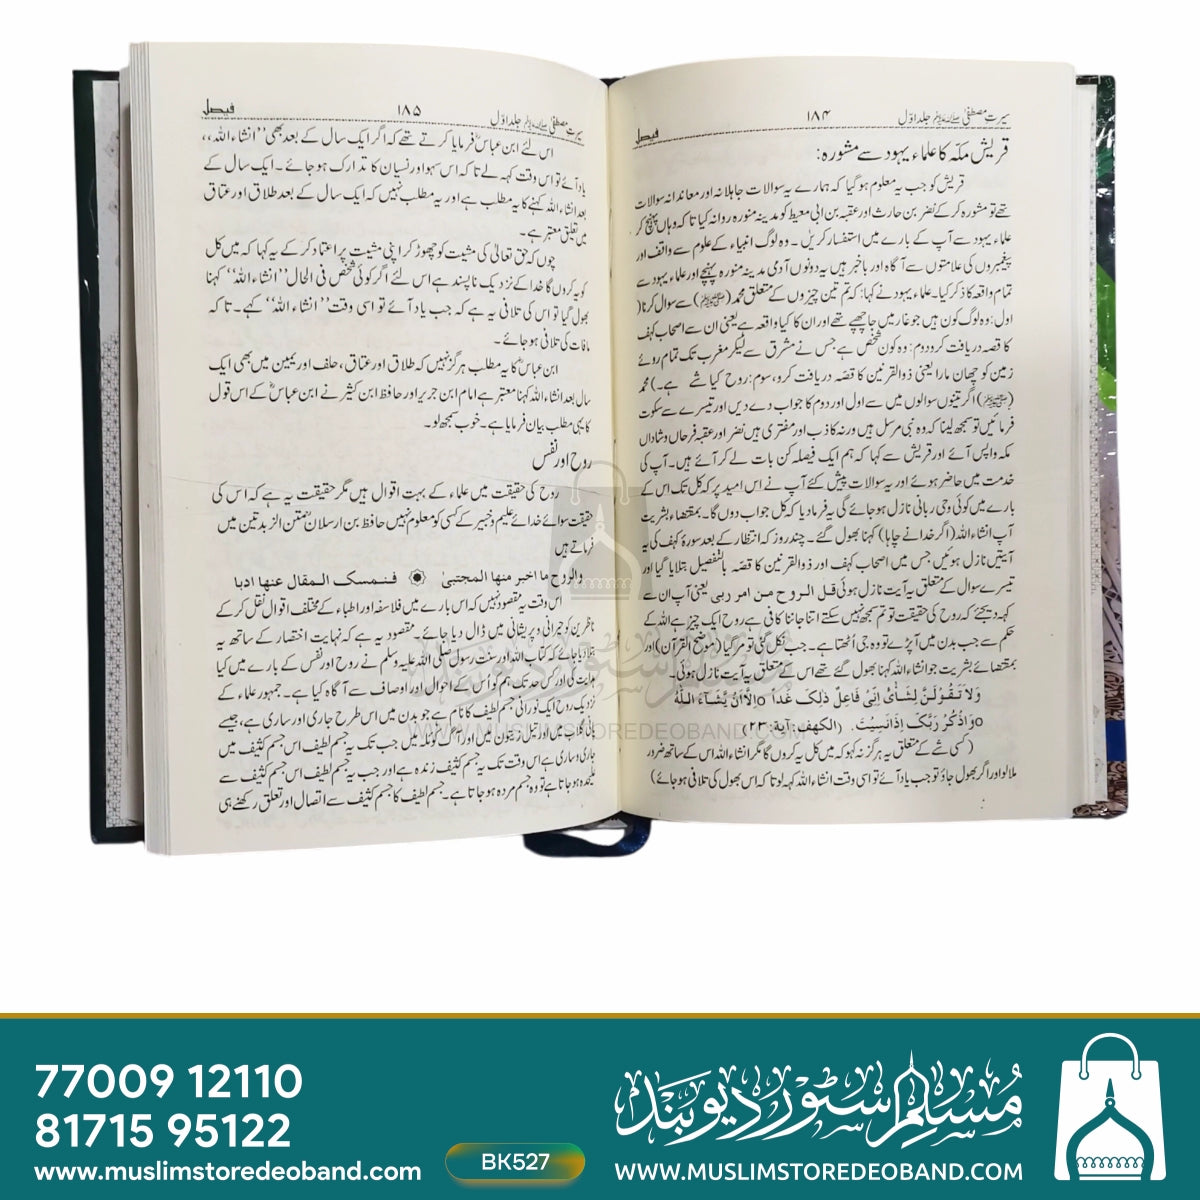 سیرت مصطفیٰ ﷺ جلد اوّل ۱۸۴ فیصل
قریش مکّہ کا علماء یہود سے مشورہ:
قریش کو جب یہ معلوم ہوگیا کہ ہمارے یہ سوالات جاہلانہ اور معاندانہ سوالات
تھے تو مشورہ کرکے نضر بن حارث اور عقبہ بن ابی معیط کو مدینہ منورہ روانہ کیا تاکہ وہاں پہنچ کر
علماء یہود سے آپ کے بارے میں استفسار کریں۔ وہ لوگ انبیاء کے علوم سے واقف اور
پیغمبروں کی علامتوں سے آگاہ اور باخبر ہیں یہ دونوں آدمی مدینہ منورہ پہنچے اور علماء یہود سے
تمام واقعہ کا ذکر کیا۔ علماء یہود نے کہا: کہ تم تین چیزوں کے متعلق محمد (ﷺ) سے سوال کرنا (
اول: وہ لوگ کون ہیں جو غار میں جا چھپے تھے اور ان کا کیا واقعہ ہے یعنی ان سے اصحاب کہف
کا قصہ دریافت کرو دوم: وہ کون شخص ہے جس نے مشرق سے لیکر مغرب تک تمام روئے
زمین کو چھان مارا یعنی ذوالقرنین کا قصہ دریافت کرو، سوم: روح کیا شے ہے۔) محمد
(ﷺ) اگر تینوں سوالوں میں سے اول اور دوم کا جواب دے دیں اور تیسرے سے سکوت
فرمائیں تو سمجھ لینا کہ وہ نبی مرسل ہیں ورنہ کاذب اور مفتری ہیں نضر اور عقبہ فرحاں و شاداں
مکہ واپس آئے اور قریش سے کہا کہ ہم ایک فیصلہ کن بات لے کر آئے ہیں۔ آپ کی
خدمت میں حاضر ہوئے اور یہ سوالات پیش کئے آپ نے اس امید پر کہ کل تک اس کے
بارے میں کوئی وحی ربانی نازل ہو جائے گی یہ فرما دیا کہ کل جواب دوں گا۔ بمقتضاء بشریت
آپ انشاء اللہ (اگر خدا نے چاہا) کہنا بھول گئے۔ چند روز کے انتظار کے بعد سورۂ کہف کی یہ
آیتیں نازل ہوئیں جس میں اصحاب کہف اور ذوالقرنین کا قصہ بالتفصیل بتلایا گیا اور
تیسرے سوال کے متعلق یہ آیت نازل ہوئی قل الروح من امر ربی یعنی آپ ان سے
کہہ دیجئے کہ روح کی حقیقت تو تم سمجھ نہیں سکتے اتنا جاننا کافی ہے روح ایک چیز ہے اللہ کے
حکم سے جب بدن میں آ پڑے تو وہ جی اُٹھتا ہے۔ جب نکل گئی تو مر گیا (موضح القرآن) اور
بمقتضائے بشریت جو انشاء اللہ کہنا بھول گئے تھے اس کے متعلق یہ آیت نازل ہوئی۔
وَلَا تَقُوْلَنَّ لِشَایْءٍ اِنِّیْ فَاعِلٌ ذٰلِکَ غَداً ٥ اِلَّا اَنْ یَّشَآءَ اللّٰهُ
٥ وَاذْکُرْ رَبَّکَ اِذَا نَسِیْتَ. (الکهف: آیة: ۲۳)
(کسی شے کے متعلق یہ ہرگز نہ کہو کہ میں کل یہ کروں گا مگر انشاء اللہ اس کے ساتھ ضرور
ملا لو اور اگر بھول جاؤ تو جب یاد آئے تو اسی وقت انشاء اللہ کہہ لو تاکہ اس بھول کی تلافی ہو جائے)
سیرت مصطفیٰ ﷺ جلد اوّل ۱۸۵ فیصل
اس لئے ابن عباسؓ فرمایا کرتے تھے کہ اگر ایک سال کے بعد بھی ''انشاء اللہ،،
یاد آئے تو اس وقت کہہ لے تاکہ اس سہو اور نسیان کا تدارک ہو جائے۔ ایک سال کے
بعد انشاء اللہ کہنے کا یہ مطلب ہے اور یہ مطلب نہیں کہ ایک سال کے بعد طلاق اور عتاق
میں تعلیق معتبر ہے۔
چوں کہ حق تعالیٰ کی مشیت کو چھوڑ کر اپنی مشیت پر اعتماد کرکے یہ کہا کہ میں کل
کو یہ کروں گا خدا کے نزدیک ناپسند ہے اس لئے اگر کوئی شخص فی الحال ''انشاء اللہ'' کہنا
بھول گیا تو اس کی تلافی یہ ہے کہ جب یاد آئے تو اسی وقت ''انشاء اللہ'' کہے۔ تاکہ
مافات کی تلافی ہو جائے۔
ابن عباسؓ کا یہ مطلب ہرگز نہیں کہ طلاق اور عتاق، حلف اور یمین میں بھی ایک
سال بعد انشاء اللہ کہنا معتبر ہے امام ابن جریر اور حافظ ابن کثیر نے ابن عباسؓ کے اس قول
کا یہی مطلب بیان فرمایا ہے۔ خوب سمجھ لو۔
روح اور نفس
روح کی حقیقت میں علماء کے بہت اقوال ہیں مگر حقیقت یہ ہے کہ اس کی
حقیقت سوائے خدائے علیم و خبیر کے کسی کو معلوم نہیں حافظ بن ارسلان متن الزبد تین میں
فرماتے ہیں
والروح ما اخبر منها المجتبیٰ فنمسک المقال عنها ادبا
اس وقت یہ مقصود نہیں کہ اس بارے میں فلاسفہ اور اطباء کے مختلف اقوال نقل کر کے
ناظرین کو حیرانی و پریشانی میں ڈال دیا جائے۔ مقصود یہ ہے کہ نہایت اختصار کے ساتھ یہ
بتلایا جائے کہ کتاب اللہ اور سنت رسول صلی اللہ علیہ وسلم نے روح اور نفس کے بارے میں کیا
ہدایت کی اور کس حد تک ہم کو اُس کے احوال اور اوصاف سے آگاہ کیا ہے۔ جمہور علماء کے
نزدیک روح ایک نورانی جسم لطیف کا نام ہے جو بدن میں اس طرح جاری اور ساری ہے، جیسے
پانی گلاب میں اور تیل زیتون میں اور آگ کوئلہ میں جب تک یہ جسم لطیف اس جسم کثیف میں
جاری و ساری ہے اس وقت تک یہ جسم کثیف زندہ ہے اور جب یہ جسم لطیف اس جسم کثیف سے
علیحدہ ہو جاتا ہے تو وہ جسم مردہ ہو جاتا ہے۔ جسم لطیف کا جسم کثیف سے اتصال اور تعلق رکھنے ہی
مسلم سٹور دیوبند
WWW.MUSLIMSTOREDEOBAND.COM
77009 12110
81715 95122
www.muslimstoredeoband.com
BK527
مسلم سٹور دیوبند
www.MUSLIMSTOREDEOBAND.COM